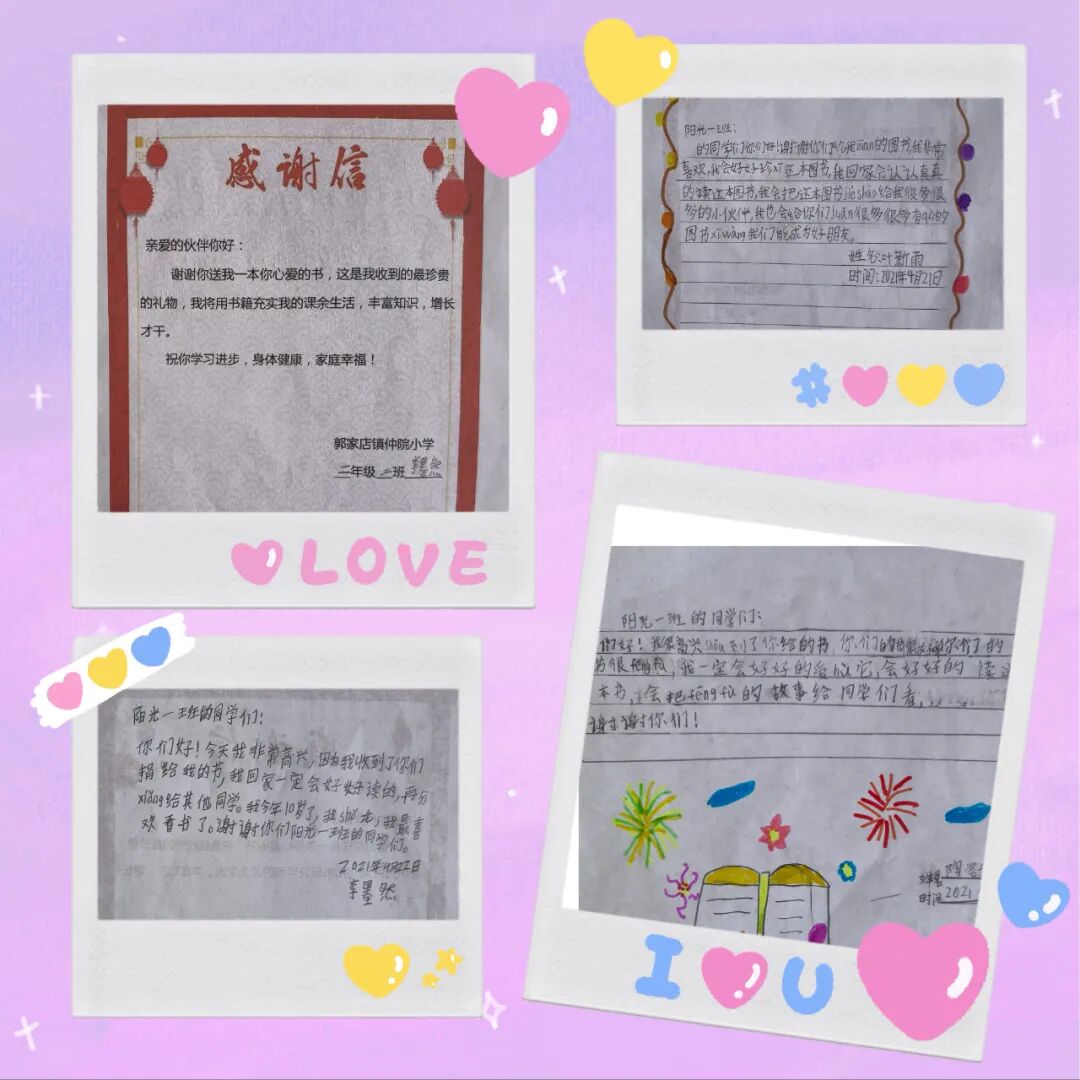 感谢信
亲爱的伙伴你好：
谢谢你送我一本你心爱的书，这是我收到的最珍贵
的礼物，我将用书籍充实我的课余生活，丰富知识，增长
才干。
祝你学习进步，身体健康，家庭幸福！
郭家店镇仲院小学
二年级二班 李墨然
LOVE
阳光一班：
的同学们你们好！谢谢你们给我juān的图书我非常
喜欢，我会好好珍这本图书，我回家会认认真真
的读这本图书，我会把这本图书jiè shào给我很多很
多的小伙伴，我也会给你们juān很多很多有的
图书xī wàng我们能成为好朋友。
姓名：叶新雨
时间：2021年4月21日
阳光一班的同学们：
你们好！今天我非常高兴，因为我收到了你们
捐给我的书，我回家一定会好好读的，再分
xiǎng给其他同学。我今年10岁了，我shǔ龙，我最喜
欢看书了。谢谢你们阳光一班的同学们。
2021年4月22日
李墨然
阳光一班的同学们：
们好！我很高兴shōu到了你给的书，你们的
书很，我一定会好好的爱hù它，会好好的读这
本书，会把fēng fù的故事给同学们看，
谢谢你们！
姓名 陶
时间 2021
I U